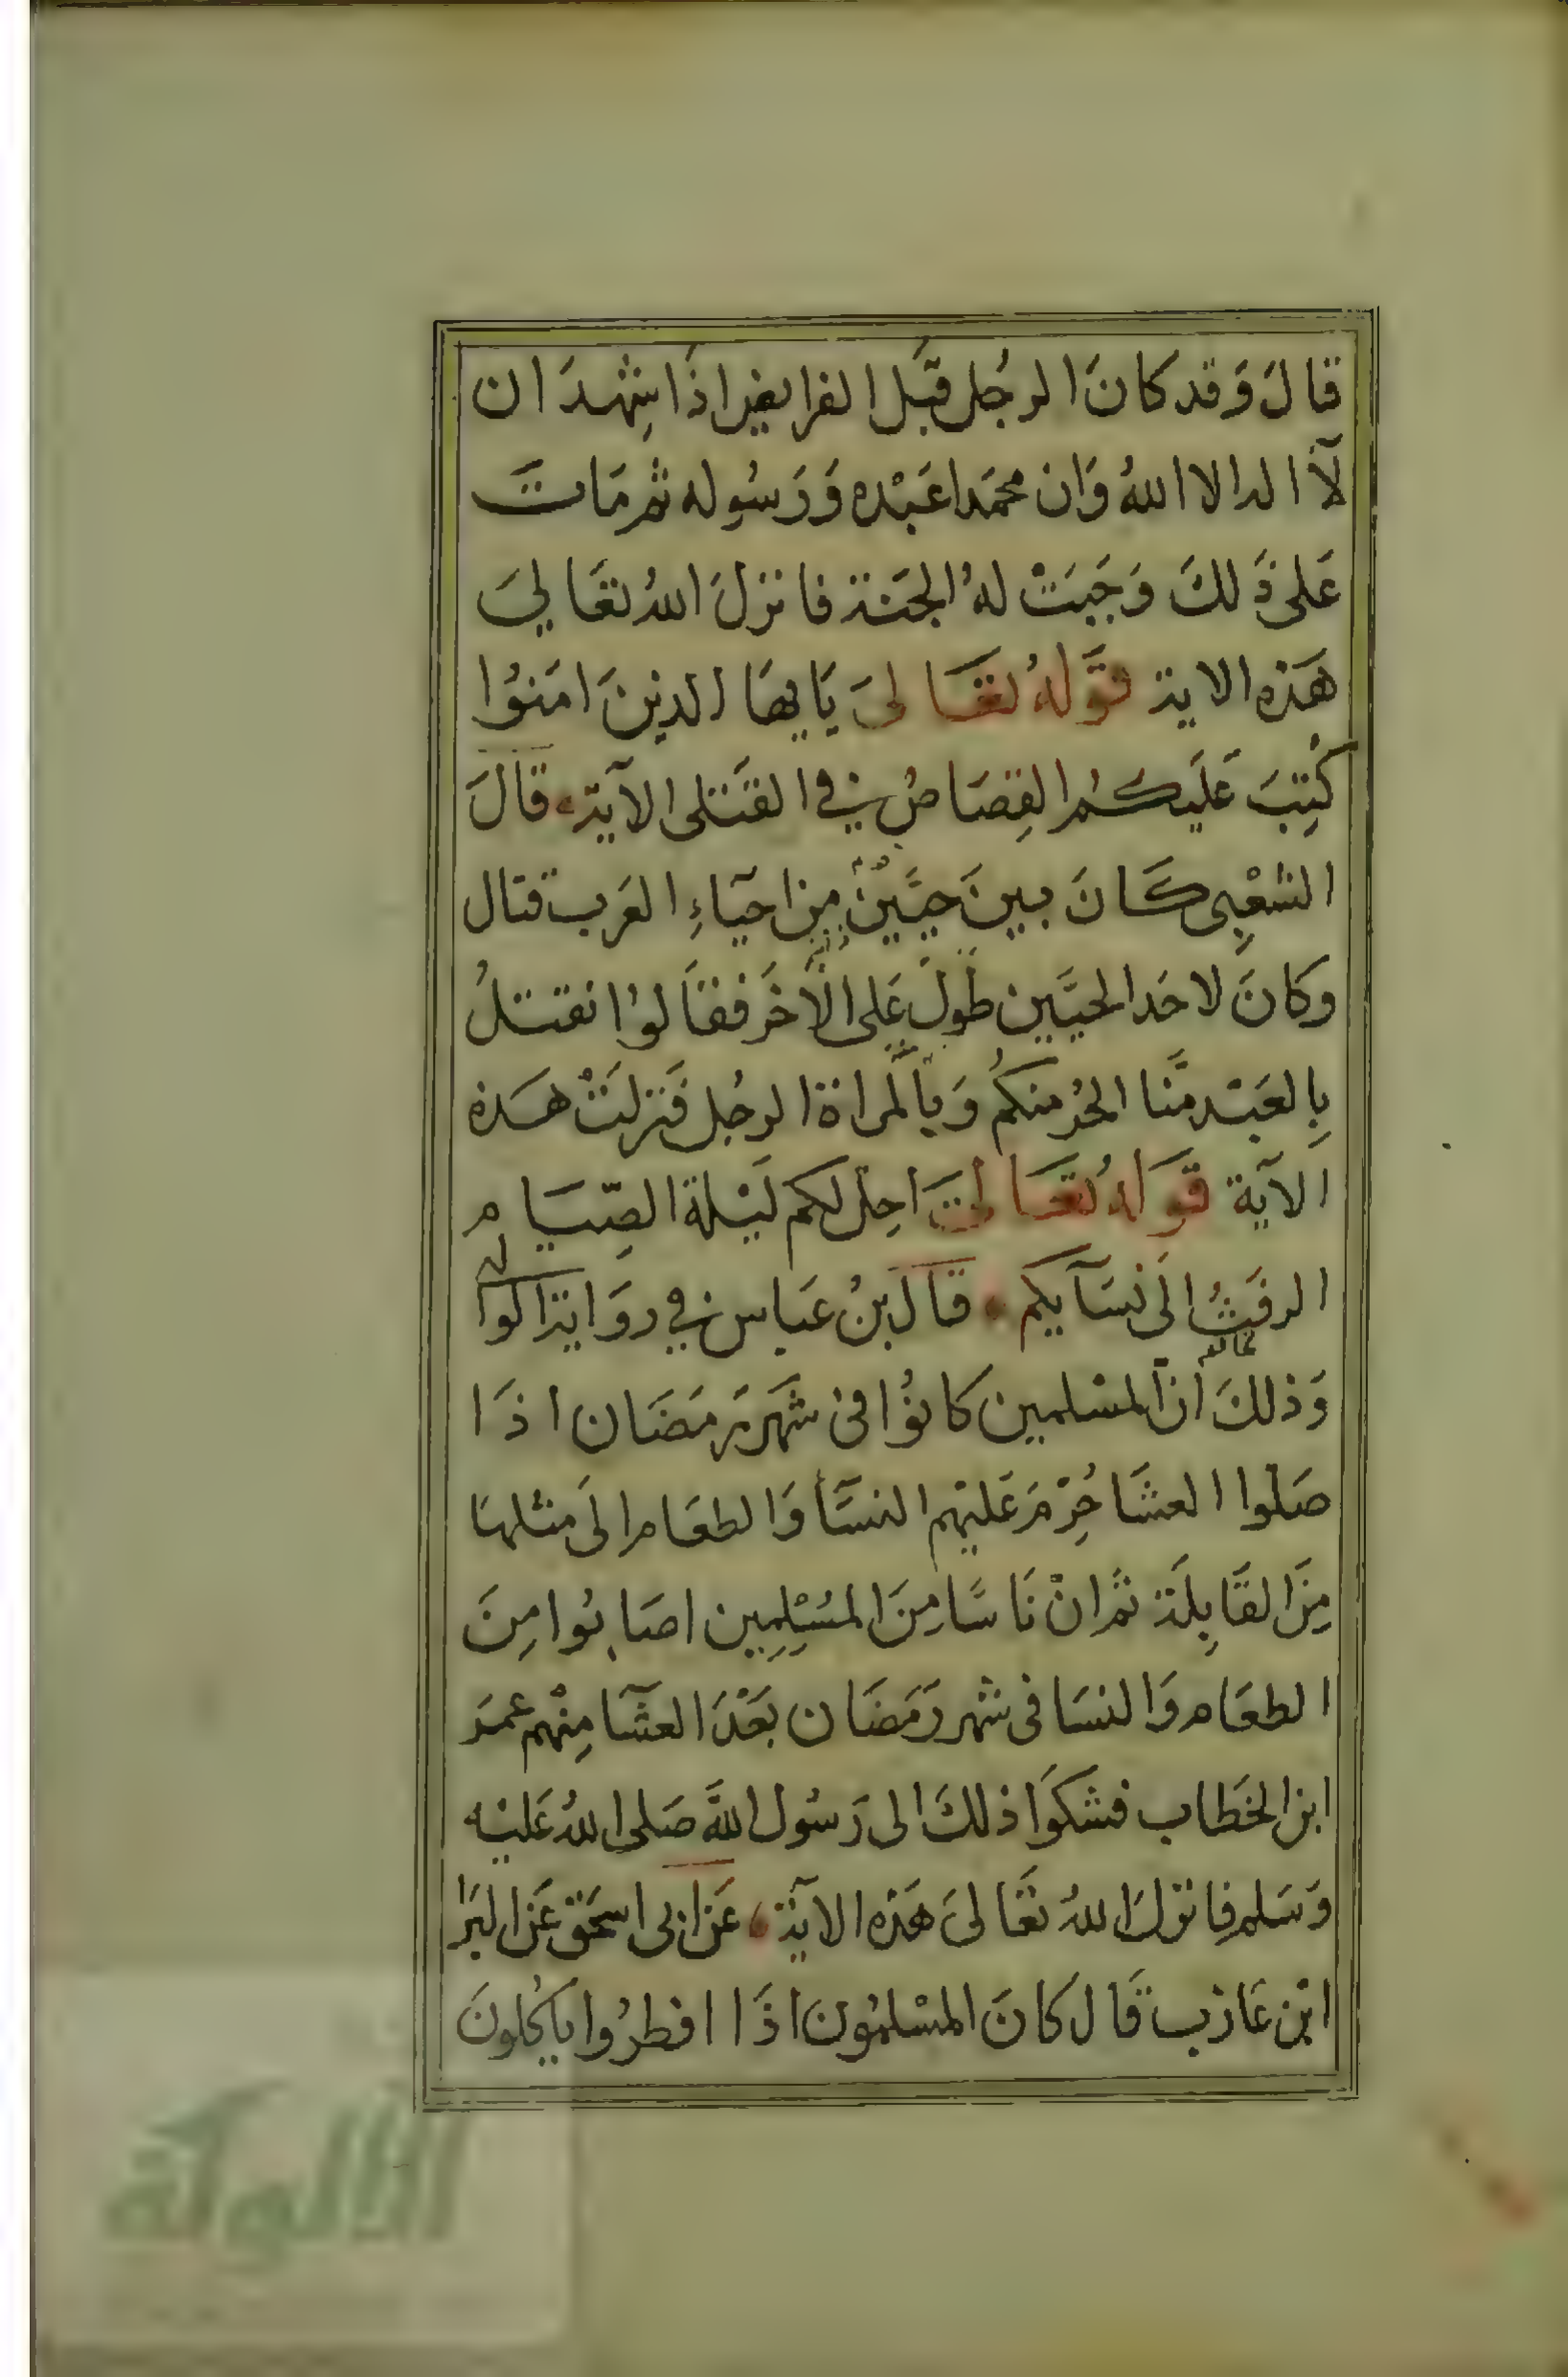 قالَ وَقد كانَ الرجُل قبَل الفرايض اذَا شِهدَ ان
لآ اله الا اللهُ وَان محمَدا عَبْده وَرَسُوله ثم مَاتَ
عَلى ذَلكَ وَجَبَتْ لهُ الجَنة فانزلَ اللهُ تعَالىَ
هَذه الاية قوَلهُ تعَالىَ يَايهَا الذينَ امَنوُا
كُتِبَ عَليكمُ القِصَاصُ في القَتلى الآية قالَ
الشعْبِى كَانَ بينَ حيَّيْن مِن احيَاءِ العَرب قتال
وكانَ لاحَد الحيَّين طَولٌ عَلى الآخَر فقاَلوُا نقتـلُ
بِالعَبْد منَّا الحُر منكمُ وَبالمراة الرجُل فَنزلَتْ هَذه
الآية قوَلهُ تعَالىَ احِل لكم ليْلة الصِّيَام
الرفَثُ الىَ نسَآيكم قالَ بنُ عَباس في روَاية الوالبي
وَذلكَ انَّ المسْلمين كانوُا فى شهَر رَمَضَان اذَا
صَلوا العشَا حُرِّمَ عَليْهم النسَّآ وَالطعَام الىَ مثلهَا
مِنَ القَابِلَة ثمَّ انْ نَاسًا مِنَ المُسْلِمِين اصَابُوا مِنَ
الطعَام وَالنسَا فى شهر رَمَضَان بَعْدَ العشَآ مِنْهم عمَر
ابن الخَطاب فشكوَا ذلكَ الى رَسُول اللَّه صَلى اللهُ عَليْه
وَسَلم فانزلَ اللهُ تعَالىَ هَذه الايَة عَن ابى اسحَق عَن البَرا
ابْن عَازب قَال كانَ المسْلمُونَ اذَا افطرُوا ياكُلونَ
الألوكة